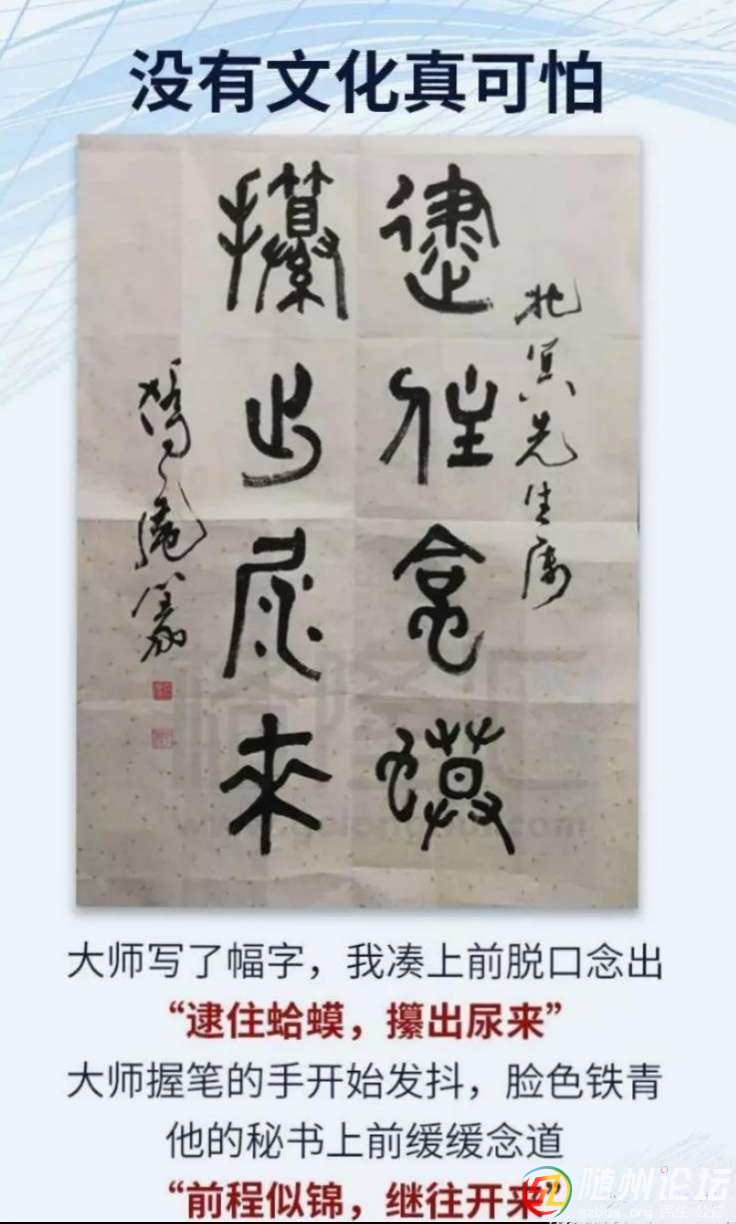 没有文化真可怕
北冥先生属
逮住蛤蟆
攥出尿来
大师写了幅字，我凑上前脱口念出
“逮住蛤蟆，攥出尿来”
大师握笔的手开始发抖，脸色铁青
他的秘书上前缓缓念道
“前程似锦，继往开来”
随州论坛
szbbs.org 民生公益